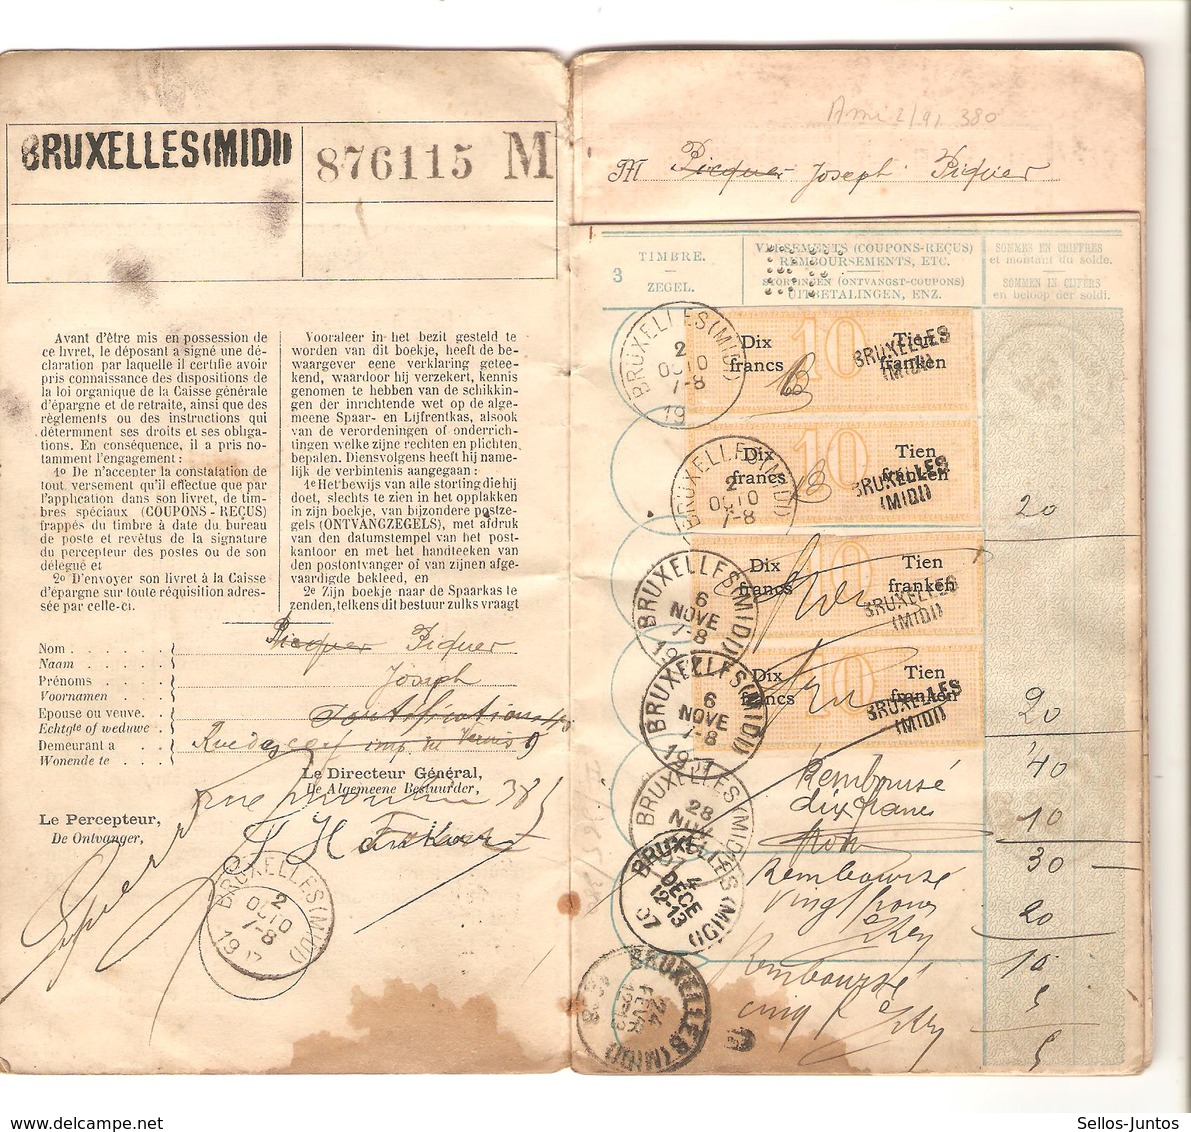 BRUXELLES(MIDI)
876115 M
Avant d'être mis en possession de
ce livret, le déposant a signé une dé-
claration par laquelle il certifie avoir
pris connaissance des dispositions de
la loi organique de la Caisse générale
d'épargne et de retraite, ainsi que des
règlements ou des instructions qui
déterminent ses droits et ses obliga-
tions. En conséquence, il a pris no-
tamment l'engagement :
1º De n'accepter la constatation de
tout versement qu'il effectue que par
l'application dans son livret, de tim-
bres spéciaux (COUPONS-REÇUS)
frappés du timbre à date du bureau
de poste et revêtus de la signature
du percepteur des postes ou de son
délégué et
2º D'envoyer son livret à la Caisse
d'épargne sur toute réquisition adres-
sée par celle-ci.
Vooraleer in het bezit gesteld te
worden van dit boekje, heeft de be-
waargever eene verklaring geteek-
kend, waardoor hij verzekert, kennis
genomen te hebben van de schikkin-
gen der inrichtende wet op de alge-
meene Spaar- en Lijfrentkas, alsook
van de verordeningen of onderrich-
tingen welke zijne rechten en plichten
bepalen. Diensvolgens heeft hij name-
lijk de verbintenis aangegaan:
1e Het bewijs van alle storting die hij
doet, slechts te zien in het opplakken
in zijn boekje, van bijzondere postze-
gels (ONTVANGZEGELS), met afdruk
van den datumstempel van het post-
kantoor en met het handteeken van
den postontvanger of van zijnen afge-
vaardigde bekleed, en
2e Zijn boekje naar de Spaarkas te
zenden, telkens dit bestuur zulks vraagt
Nom
Naam
Picquer Piquer
Prénoms
Voornamen
Joseph
Epouse ou veuve.
Echtgte of weduwe
Demeurant a
Wonende te
Le Directeur Général,
De Algemeene Bestuurder,
Le Percepteur,
De Ontvanger,
BRUXELLES (MIDI)
2
OCTO
7-8
M Picquer Joseph Piquer
3
TIMBRE.
ZEGEL.
VERSEMENTS (COUPONS-REÇUS)
REMBOURSEMENTS, ETC.
STORTINGEN (ONTVANGST-COUPONS)
UITBETALINGEN, ENZ.
SOMMES EN CHIFFRES
et montant du solde.
SOMMEN IN CIJFERS
en beloop der soldi.
BRUXELLES (MIDI)
2
OCTO
7-8
19
Dix
francs
10
Tien
franken
BRUXELLES
(MIDI)
BRUXELLES (MIDI)
2
OCTO
7-8
Dix
francs
10
Tien
franken
BRUXELLES
(MIDI)
20
BRUXELLES (MIDI)
6
NOVE
7-8
19
Dix
francs
10
Tien
franken
BRUXELLES
(MIDI)
BRUXELLES (MIDI)
6
NOVE
7-8
1907
Dix
francs
10
Tien
franken
BRUXELLES
(MIDI)
20
40
BRUXELLES (MIDI)
28
NOV
Remboursé
dix francs
10
30
BRUXELLES (MIDI)
4
DECE
12-13
07
Remboursé
vingt francs
20
10
BRUXELLES (MIDI)
24
FEVR
Remboursé
cinq f
5
5
delcampe.net
Sellos-Juntos